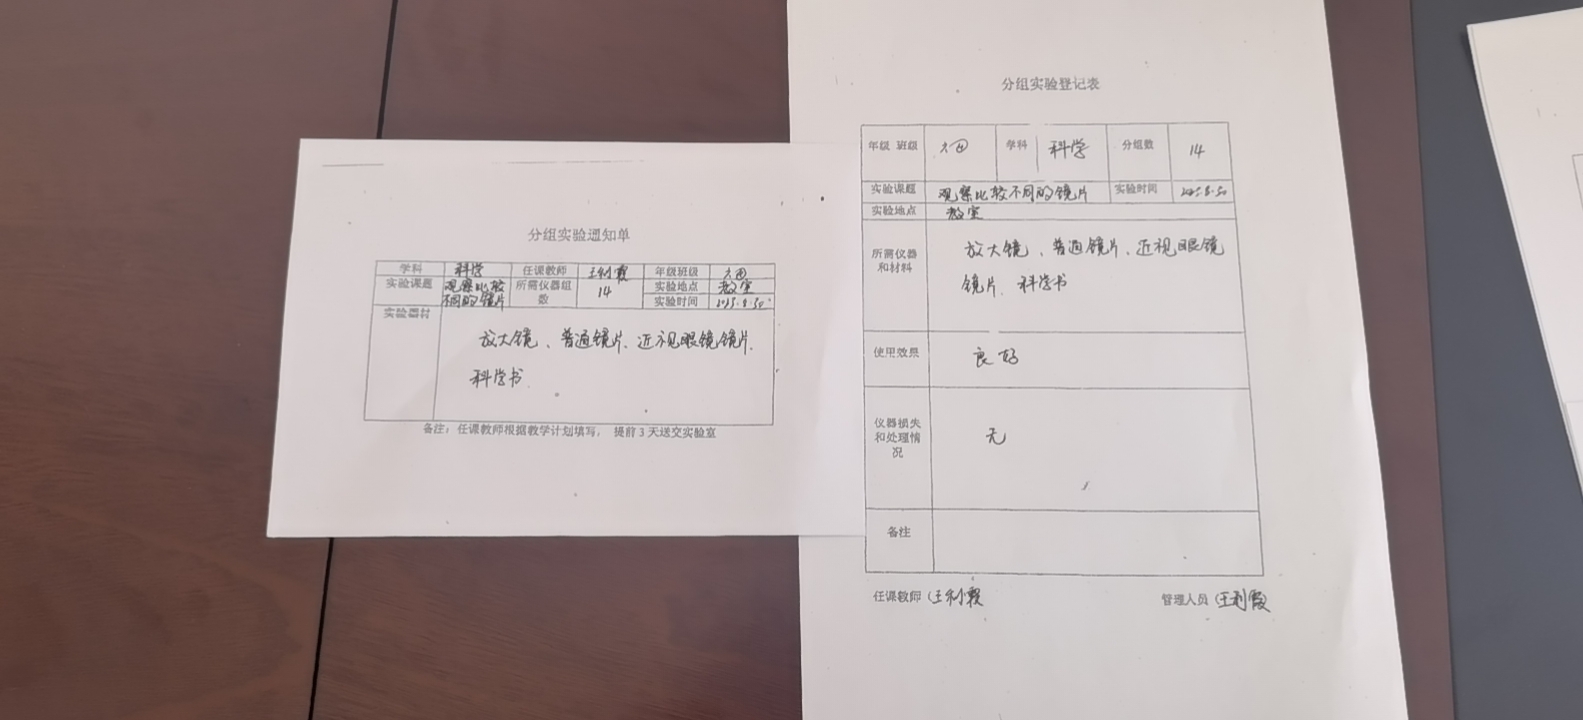 分组实验通知单
学科 科学 任课教师 王利霞 年级班级 六四
实验课题 观察比较不同的镜片 所需仪器组数 14 实验地点 教室
实验时间
实验器材 放大镜、普通镜片、近视眼镜镜片、
科学书
备注：任课教师根据教学计划填写， 提前3天送交实验室
分组实验登记表
年级 班级 六四 学科 科学 分组数 14
实验课题 观察比较不同的镜片 实验时间
实验地点 教室
所需仪器和材料 放大镜、普通镜片、近视眼镜
镜片、科学书
使用效果 良好
仪器损失和处理情况 无
备注
任课教师（王利霞 管理人员（王利霞）